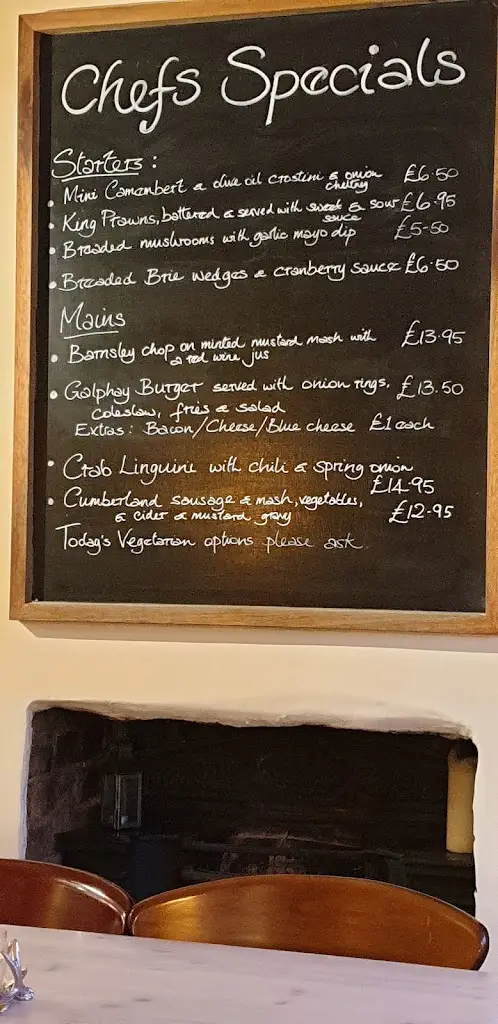 Chefs Specials
Starters:
• Mini Camembert & olive oil crostini & onion chutney £6.50
• King Prawns, battered & served with sweet & sour sauce £6.95
• Breaded mushrooms with garlic mayo dip £5-50
• Breaded Brie wedges & cranberry sauce £6.50
Mains
• Barnsley chop on minted mustard mash with £13.95
& red wine jus
• Galphay Burger served with onion rings, £13.50
coleslaw, fries & salad
Extras: Bacon/Cheese/Blue cheese £1 each
• Crab Linguine with chili & spring onion
£14.95
• Cumberland sausage & mash, vegetables,
& cider & mustard gravy £12.95
Today's Vegetarian options please ask.